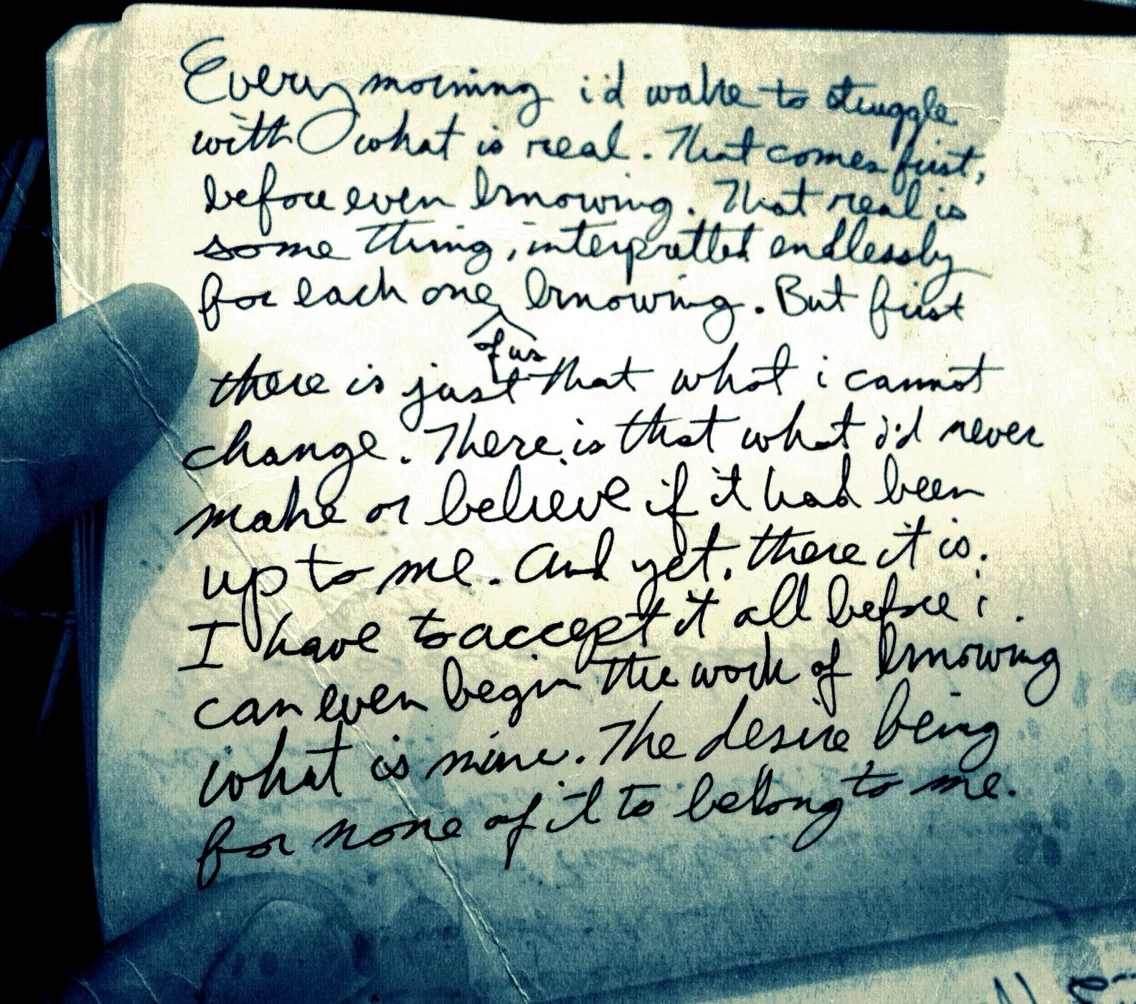 Every morning i'd wake to struggle
with what is real. That comes first,
before even knowing. That real is
some thing, interpretted endlessly
for each one knowing. But first
of us
there is just that what i cannot
change. There is that what i'd never
make or believe if it had been
up to me. And yet, there it is.
I have to accept it all before i
can even begin the work of knowing
what is mine. The desire being
for none of it to belong to me.